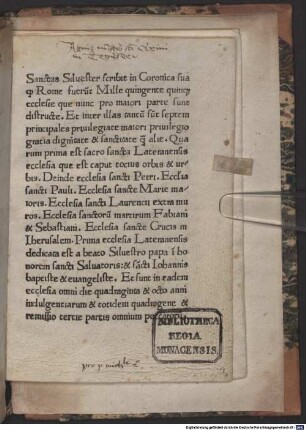 Sanctus Siluester scribit in Coronica sua
ꝙ Rome fuerūt Mille quingente quinqꝫ
ecclesie que nunc pro maiori parte sunt
distructe. Et inter illas autē sūt septem
principales priuilegiate maiori priuilegio
gracia dignitate & sanctitate ꝙ̄ alie. Qua
rum prima est sacro sancta Lateranensis
ecclesia que est caput tocius orbis & ur⸗
bis. Deinde ecclesia sancti Petri. Ecclesia
sancti Pauli. Ecclesia sancte Marie ma⸗
ioris. Ecclesia sancti Laurencii extra mu
ros. Ecclesia sanctorū martirum Fabiani
& Sebastiani. Ecclesia sancte Crucis in
Iherusalem. Prima ecclesia Lateranensis
dedicata est a beato Siluestro papa ī ho
norem sancti Saluatoris: & sācti Iohannis
baptiste & euangeliste. Et sunt in eadem
ecclesia omni die quadraginta & octo anni
indulgentiarum & totidem quadragene &
remissio tercie partis omnium
BIBLIOTHECA
REGIA
MONACENSIS.